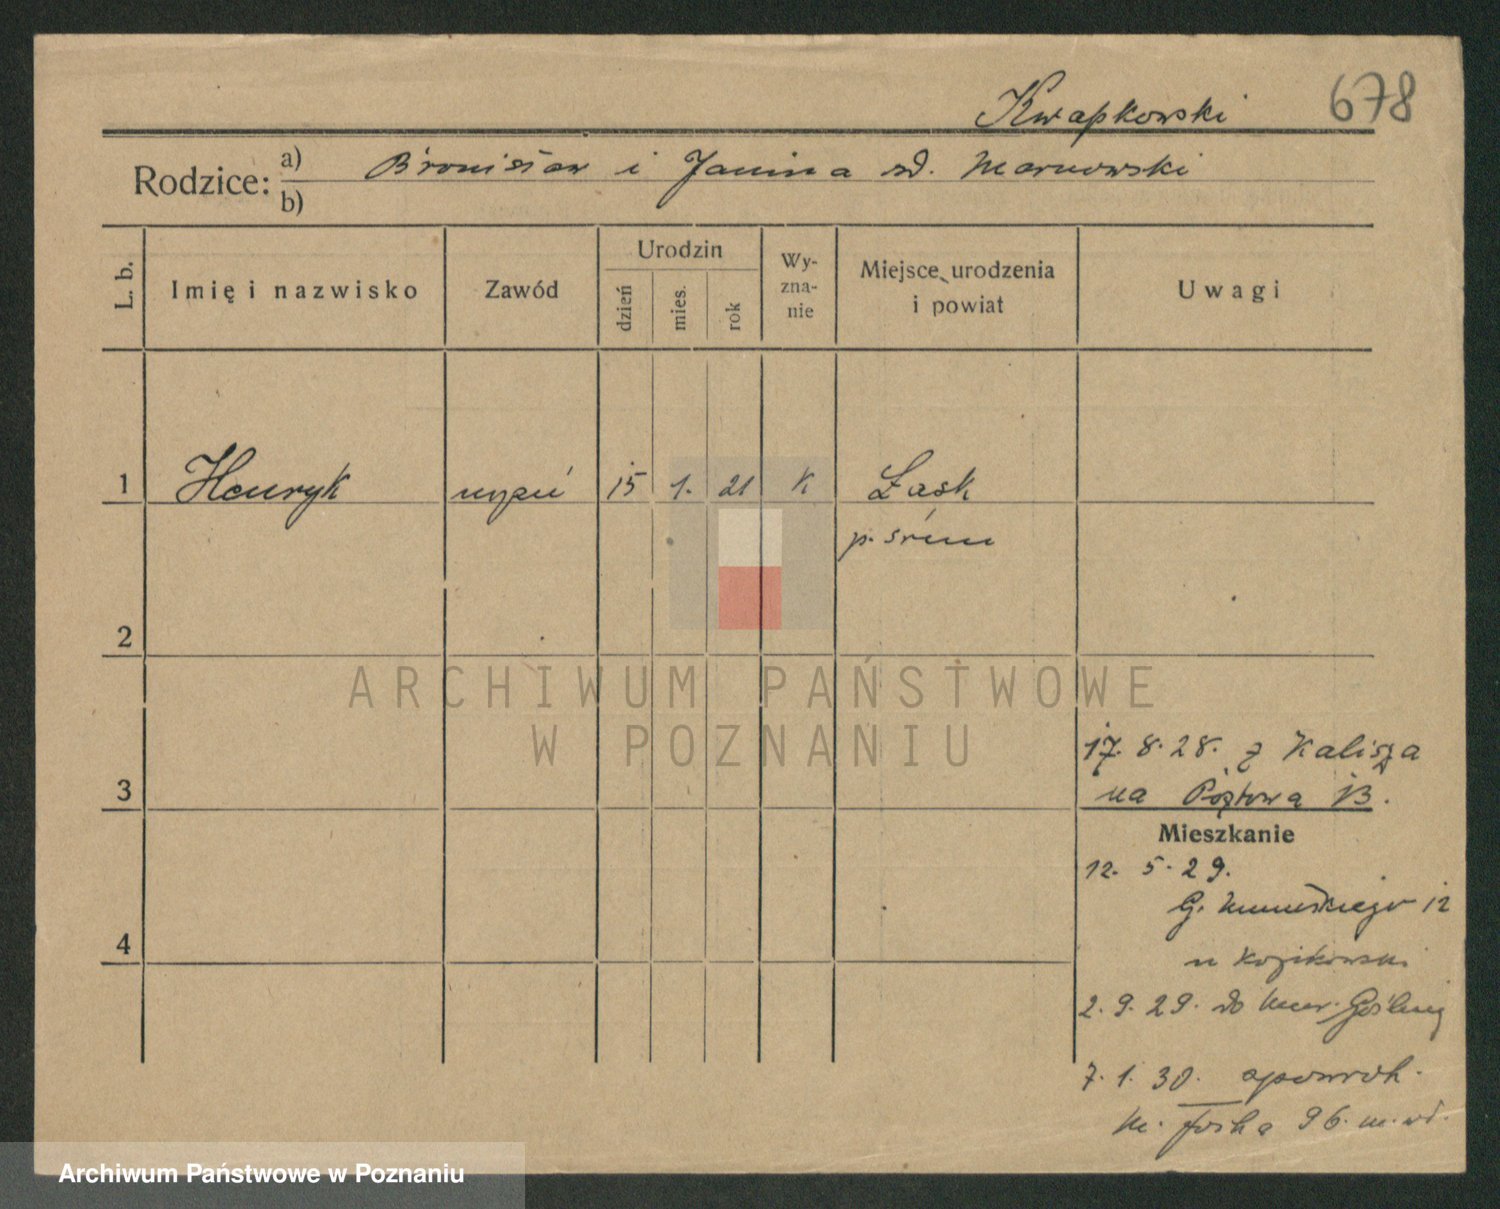 Kwapkowski 678
Rodzice: a) Bronisław i Janina zd. Marnowski
b)
L. b. Imię i nazwisko Zawód Urodzin dzień mies. rok Wyznanie Miejsce urodzenia i powiat Uwagi
1 Henryk 15 1. 21 K Łask
p. śrem
2
ARCHIWUM PAŃSTWOWE
W POZNANIU
17. 8. 28. z Kalisza
3 na 13.
Mieszkanie
12. 5. 29.
G. 12
4 u Kozikowski
2. 9. 29. do Mur. Gośliny
7. 1. 30. spowroh.
M. Focha 96. m.
Archiwum Państwowe w Poznaniu